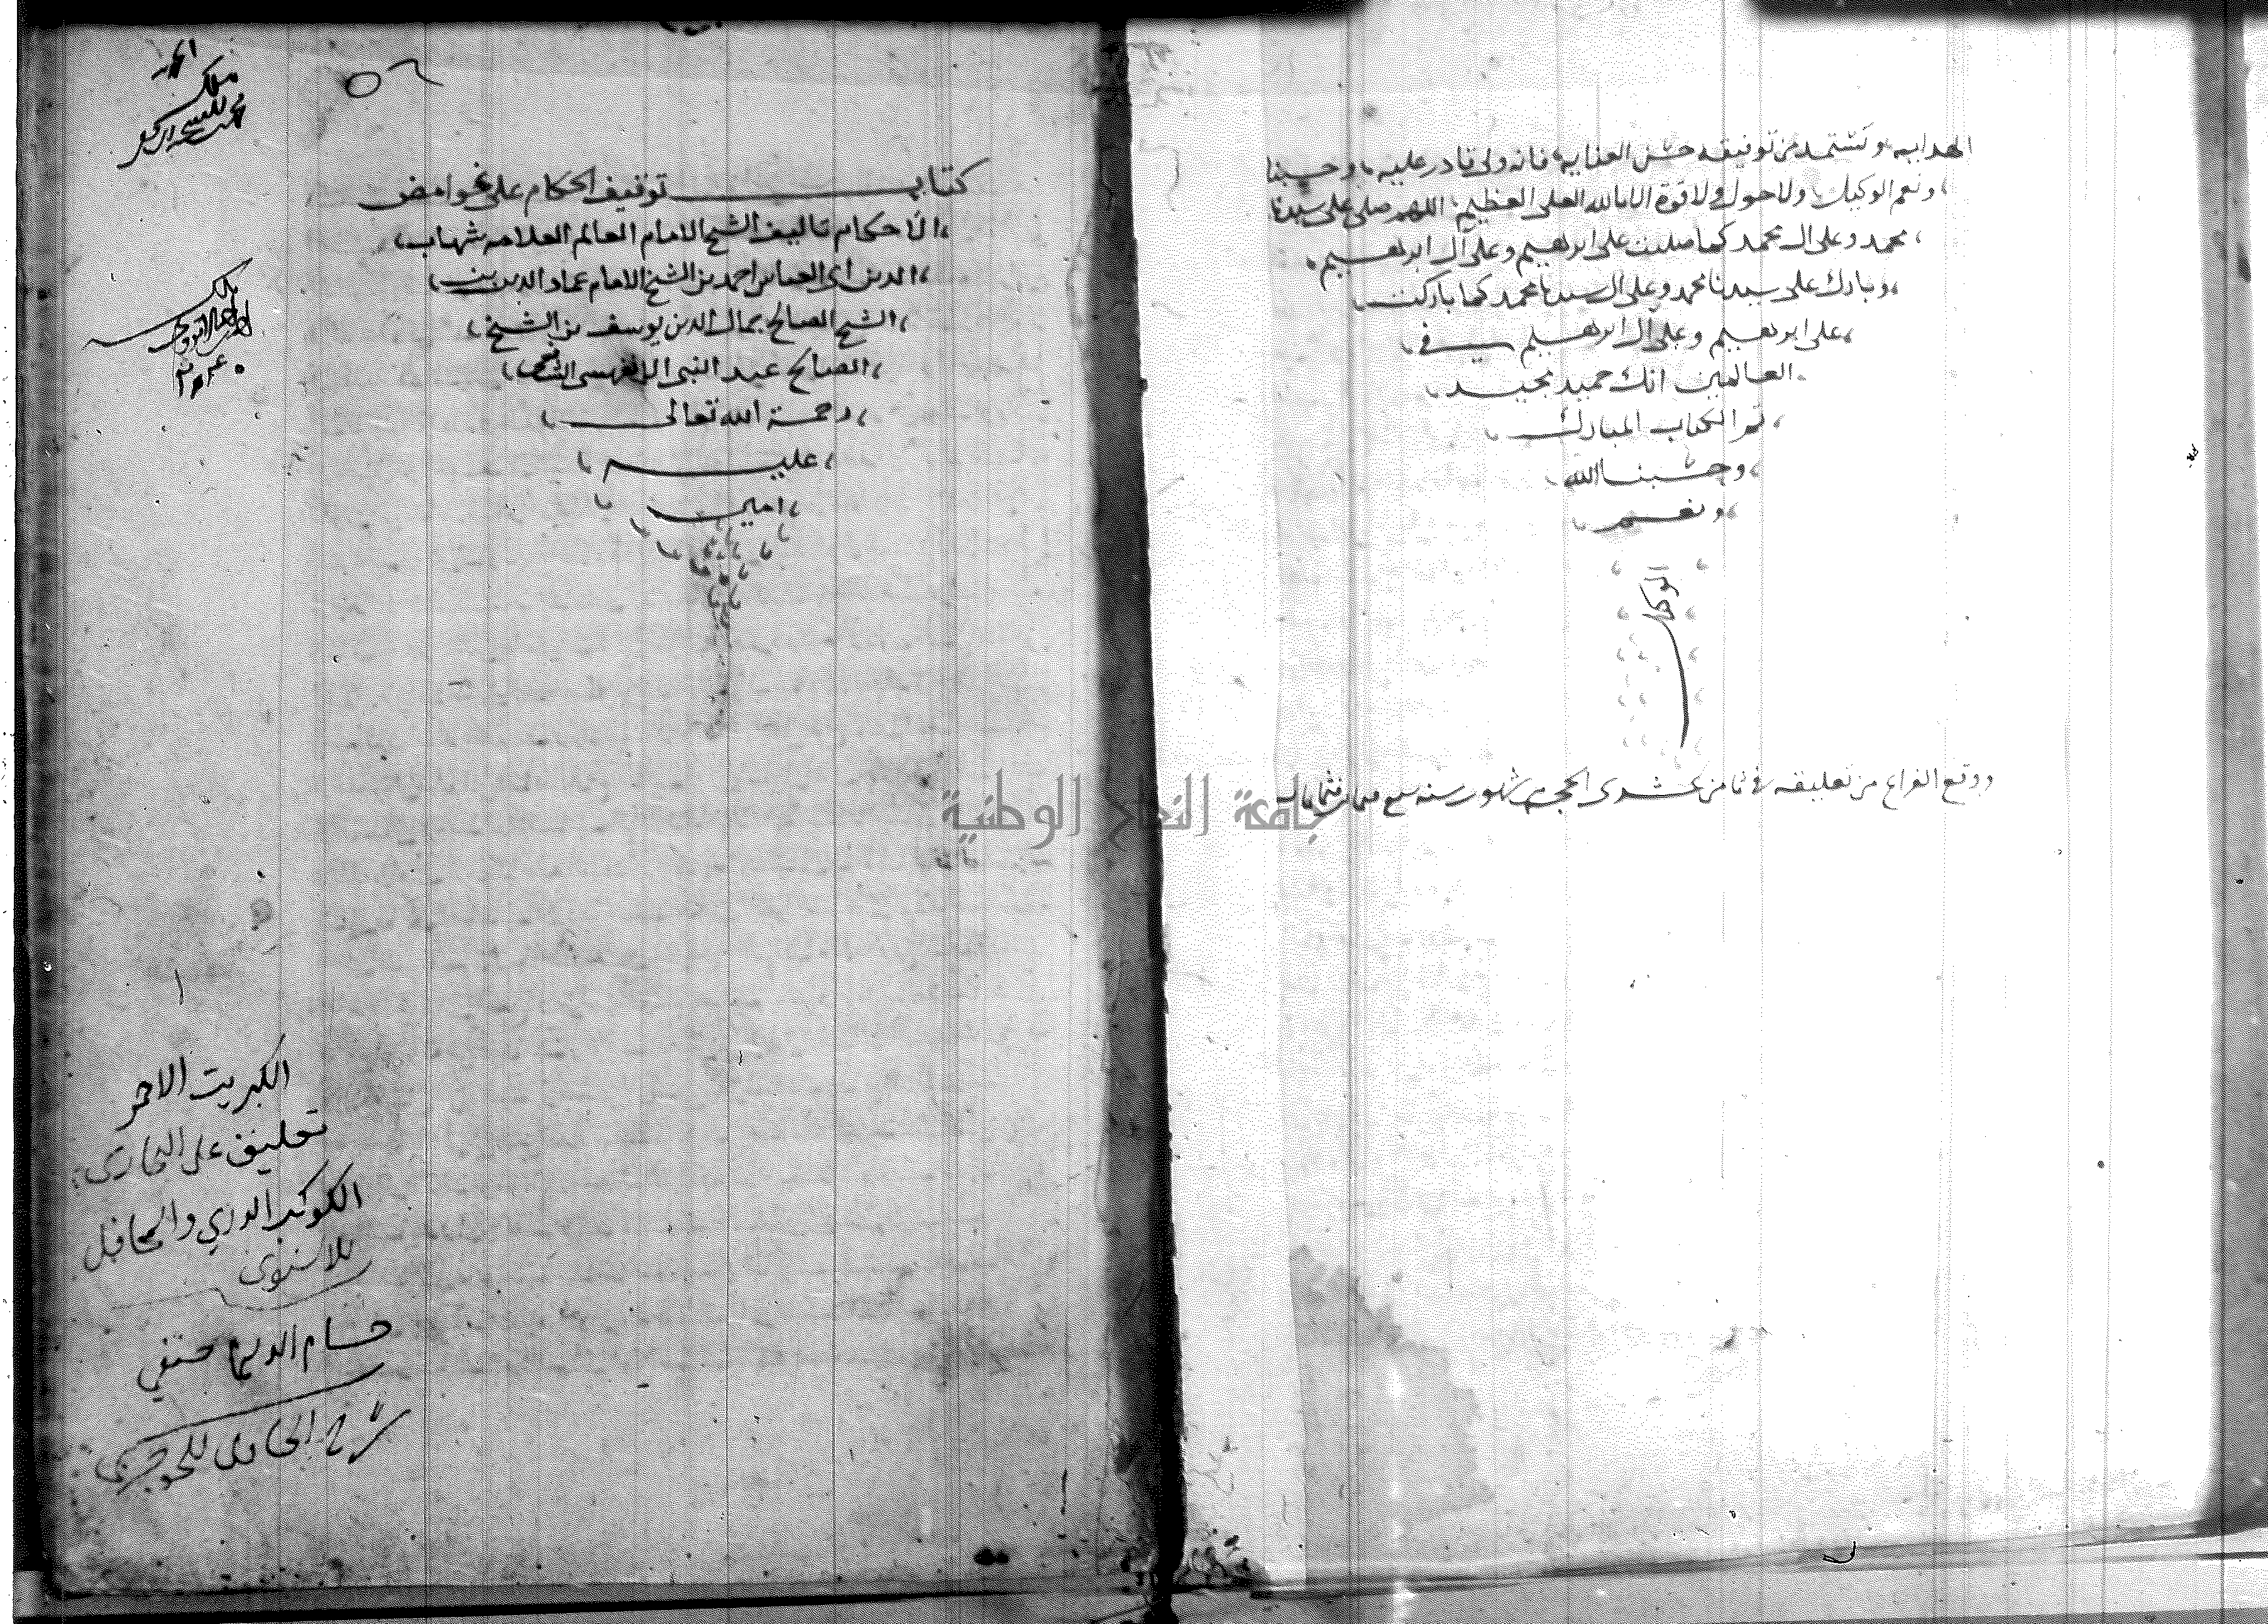 الهدايه ونستمد من توفيقه حسن العنايه فانه ولى قادر عليه وحسبنا
ونعم الوكيل ولا حول ولا قوة الا بالله العلى العظيم اللهم صلى على سيدنا
محمد وعلى ال محمد كما صليت على ابرهيم وعلى ال ابرهيم
وبارك على سيدنا محمد وعلى ال سيدنا محمد كما باركت
على ابرهيم وعلى ال ابرهيم فى
العالمين انك حميد مجيد
تم الكتاب المبارك
وحسبنا الله
ونعم
الوكيل
ووقع الفراغ من تعليقه فى ثامن عشرى الحجه من شهور سنه سبع وثمانمايه
كتاب توقيف الحكام على غوامض
الاحكام تاليف الشيخ الامام العالم العلامه شهاب
الدين أبى العباس احمد بن الشيخ الامام عماد الدين بن
الشيخ الصالح جمال الدين يوسف بن الشيخ
الصالح عبد النبى الاقفهسى الشافعى
رحمة الله تعالى
عليه
امين
ملك
ملك
الكبريت الاحمر
تعليق على البخارى
الكوكب الدري والمحافل
للاسنوى
حسام الدين حنفي
شرح الحاوى للجوجرى
جامعة النجاح الوطنية